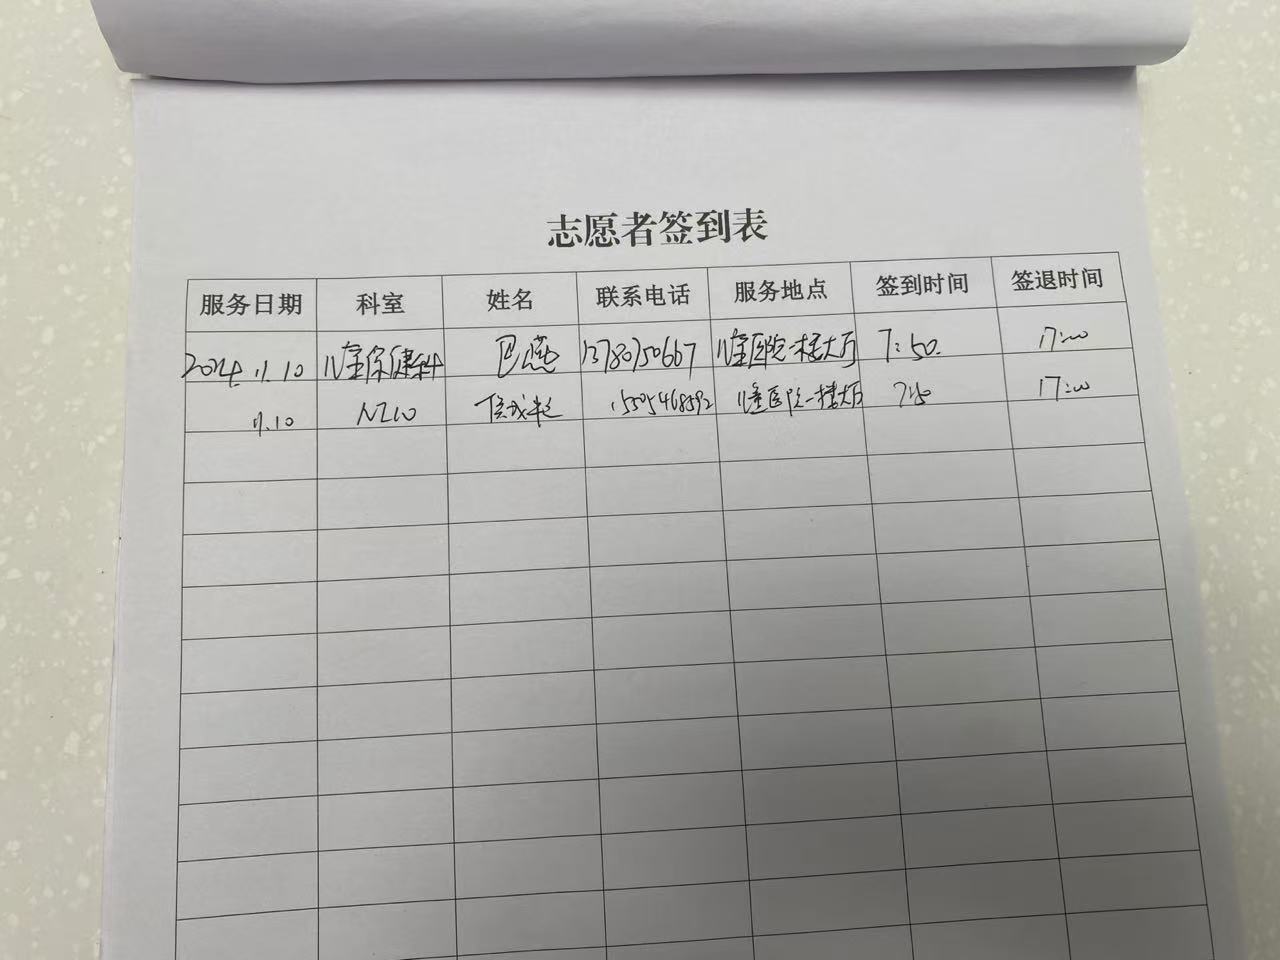 志愿者签到表
服务日期 科室 姓名 联系电话 服务地点 签到时间 签退时间
2024.11.10 儿童保健科 巴燕 13780750667 儿童医院一楼大厅 7:50. 17:00
11.10 儿童医院一楼大厅 7:50 17:00